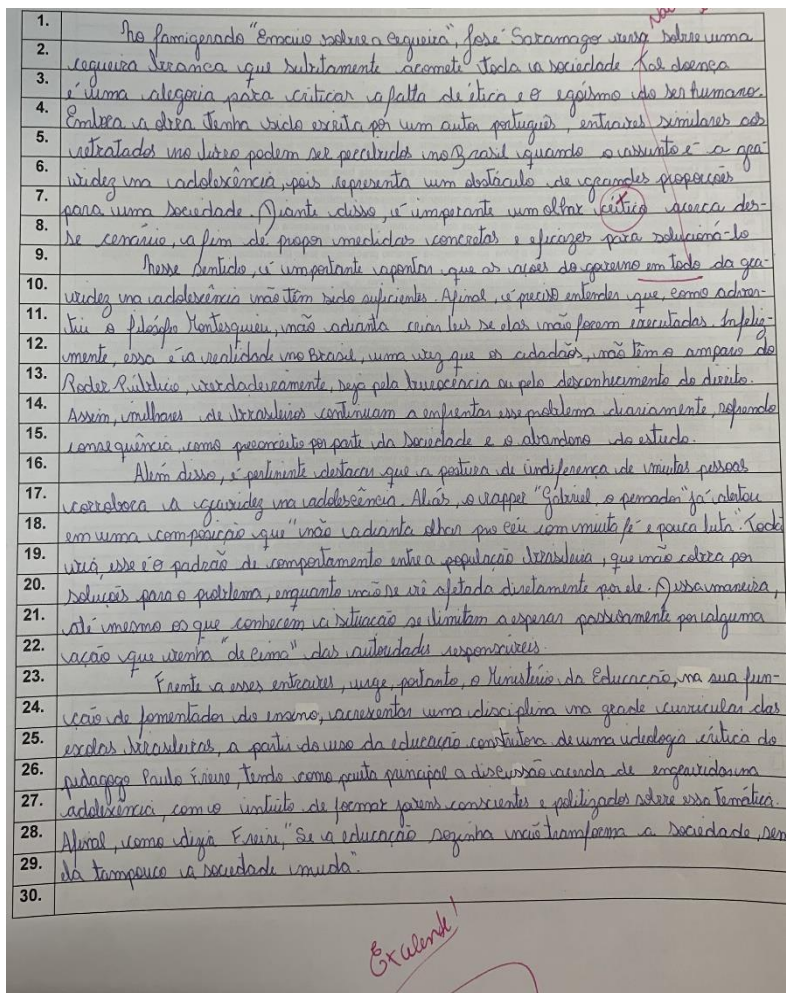 1. No famigerado "Ensaio sobre a cegueira", José Saramago versa sobre uma
2. cegueira branca que subitamente acomete toda a sociedade. Tal doença
3. é uma alegoria para criticar a falta de ética e o egoísmo do ser humano.
4. Embora a obra tenha sido escrita por um autor português, entraves similares aos
5. retratados no livro podem ser percebidos no Brasil quando o assunto é a gra-
6. videz na adolescência, pois representa um obstáculo de grandes proporções
7. para uma sociedade. Diante disso, é importante um olhar crítico acerca des-
8. se cenário, a fim de propor medidas concretas e eficazes para solucioná-lo
9. Nesse sentido, é importante apontar que as ações do governo em todo da gra-
10. videz na adolescência não têm sido suficientes. Afinal, é preciso entender que, como adver-
11. tiu o filósofo Montesquieu, não adianta criar leis se elas não forem executadas. Infeliz-
12. mente, essa é a realidade no Brasil, uma vez que os cidadãos, não têm o amparo do
13. Poder Público, verdadeiramente, seja pela burocencia ou pelo desconhecimento do direito.
14. Assim, milhares de brasileiros continuam a enfrentar esse problema diariamente, sofrendo
15. consequência, como preconceito por parte da sociedade e o abandono do estudo.
16. Além disso, é pertinente destacar que a postura de indiferença de muitas pessoas
17. corrobora a gravidez na adolescência. Aliás, o rapper "Gabriel o pensador" já alertou
18. em uma composição que "não adianta olhar pro céu com muita fé e pouca luta". Toda
19. via, esse é o padrão de comportamento entre a população brasileira, que não cobra por
20. soluções para o problema, enquanto não se vê afetada diretamente por ele. Dessa maneira,
21. até mesmo os que conhecem a situação se limitam a esperar passivamente por alguma
22. ação que venha "de cima" das autoridades responsáveis.
23. Frente a esses entraves, urge, portanto, o Ministério da Educação, na sua fun-
24. ção de fomentador do ensino, acrescentar uma disciplina na grade curricular das
25. escolas brasileiras, a parti do uso da educação construtora de uma ideologia crítica do
26. pedagogo Paulo Freire, tendo como pauta principal a discussão acerda de
27. adolescência, com o intuito de formar jovens conscientes e politizados sobre essa temática.
28. Afinal, como dizia Freire, "Se a educação sozinha não transforma a sociedade, sem
29. ela tampouco a sociedade muda".
30.